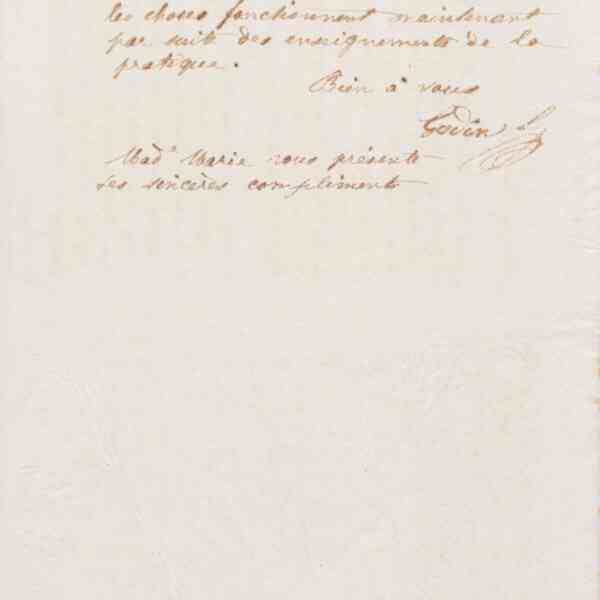 les choses fonctionnent maintenant
par suite des enseignements de la
pratique.
Bien à vous
Godin
Mad^e Marie vous présente
ses sincères compliments